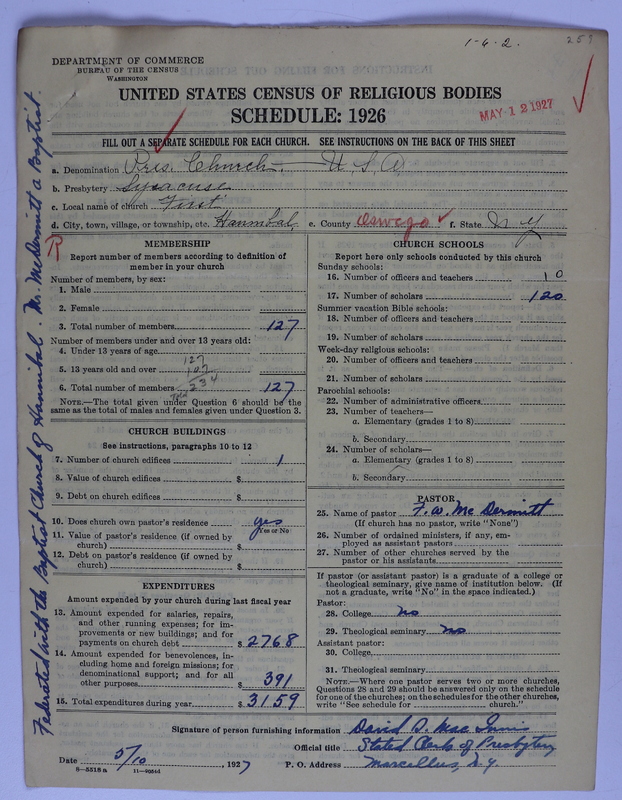 1-6-2.
259
DEPARTMENT OF COMMERCE
BUREAU OF THE CENSUS
WASHINGTON
UNITED STATES CENSUS OF RELIGIOUS BODIES
SCHEDULE: 1926
MAY 12 1927
FILL OUT A SEPARATE SCHEDULE FOR EACH CHURCH. SEE INSTRUCTIONS ON THE BACK OF THIS SHEET
a. Denomination Pres. Church. U. S. A.
b. Presbytery Syracuse
c. Local name of church First
d. City, town, village, or township, etc. Hannibal e. County Oswego f. State N Y
R
MEMBERSHIP
Report number of members according to definition of
member in your church
Number of members, by sex:
1. Male
2. Female
3. Total number of members 127
Number of members under and over 13 years old:
4. Under 13 years of age
127
5. 13 years old and over 107
234
6. Total number of members 127
NOTE.—The total given under Question 6 should be the
same as the total of males and females given under Question 3.
CHURCH BUILDINGS
See instructions, paragraphs 10 to 12
7. Number of church edifices 1
8. Value of church edifices $
9. Debt on church edifices $
10. Does church own pastor's residence yes
Yes or No
11. Value of pastor's residence (if owned by
church) $
12. Debt on pastor's residence (if owned by
church) $
EXPENDITURES
Amount expended by your church during last fiscal year
13. Amount expended for salaries, repairs,
and other running expenses; for im-
provements or new buildings; and for
payments on church debt $ 2768
14. Amount expended for benevolences, in-
cluding home and foreign missions; for
denominational support; and for all
other purposes $ 391
15. Total expenditures during year $ 3159
CHURCH SCHOOLS
Report here only schools conducted by this church
Sunday schools:
16. Number of officers and teachers 10
17. Number of scholars 120
Summer vacation Bible schools:
18. Number of officers and teachers
19. Number of scholars
Week-day religious schools:
20. Number of officers and teachers
21. Number of scholars
Parochial schools:
22. Number of administrative officers
23. Number of teachers—
a. Elementary (grades 1 to 8)
b. Secondary
24. Number of scholars—
a. Elementary (grades 1 to 8)
b. Secondary
PASTOR
25. Name of pastor F. W. McDermitt
(If church has no pastor, write "None")
26. Number of ordained ministers, if any, em-
ployed as assistant pastors
27. Number of other churches served by the
pastor or his assistants
If pastor (or assistant pastor) is a graduate of a college or
theological seminary, give name of institution below. (If
not a graduate, write "No" in the space indicated.)
Pastor:
28. College No
29. Theological seminary no
Assistant pastor:
30. College
31. Theological seminary
NOTE.—Where one pastor serves two or more churches,
Questions 28 and 29 should be answered only on the schedule
for one of the churches; on the schedules for the other churches,
write "See schedule for church."
Signature of person furnishing information David S. Mac Innis
Official title Stated Clerk of Presbytery
Date 5/10, 1927 P. O. Address Marcellus, N.Y.
8—5518a 11—90564
Federated with the Baptist Church of Hannibal. Mr. McDermitt a Baptist.